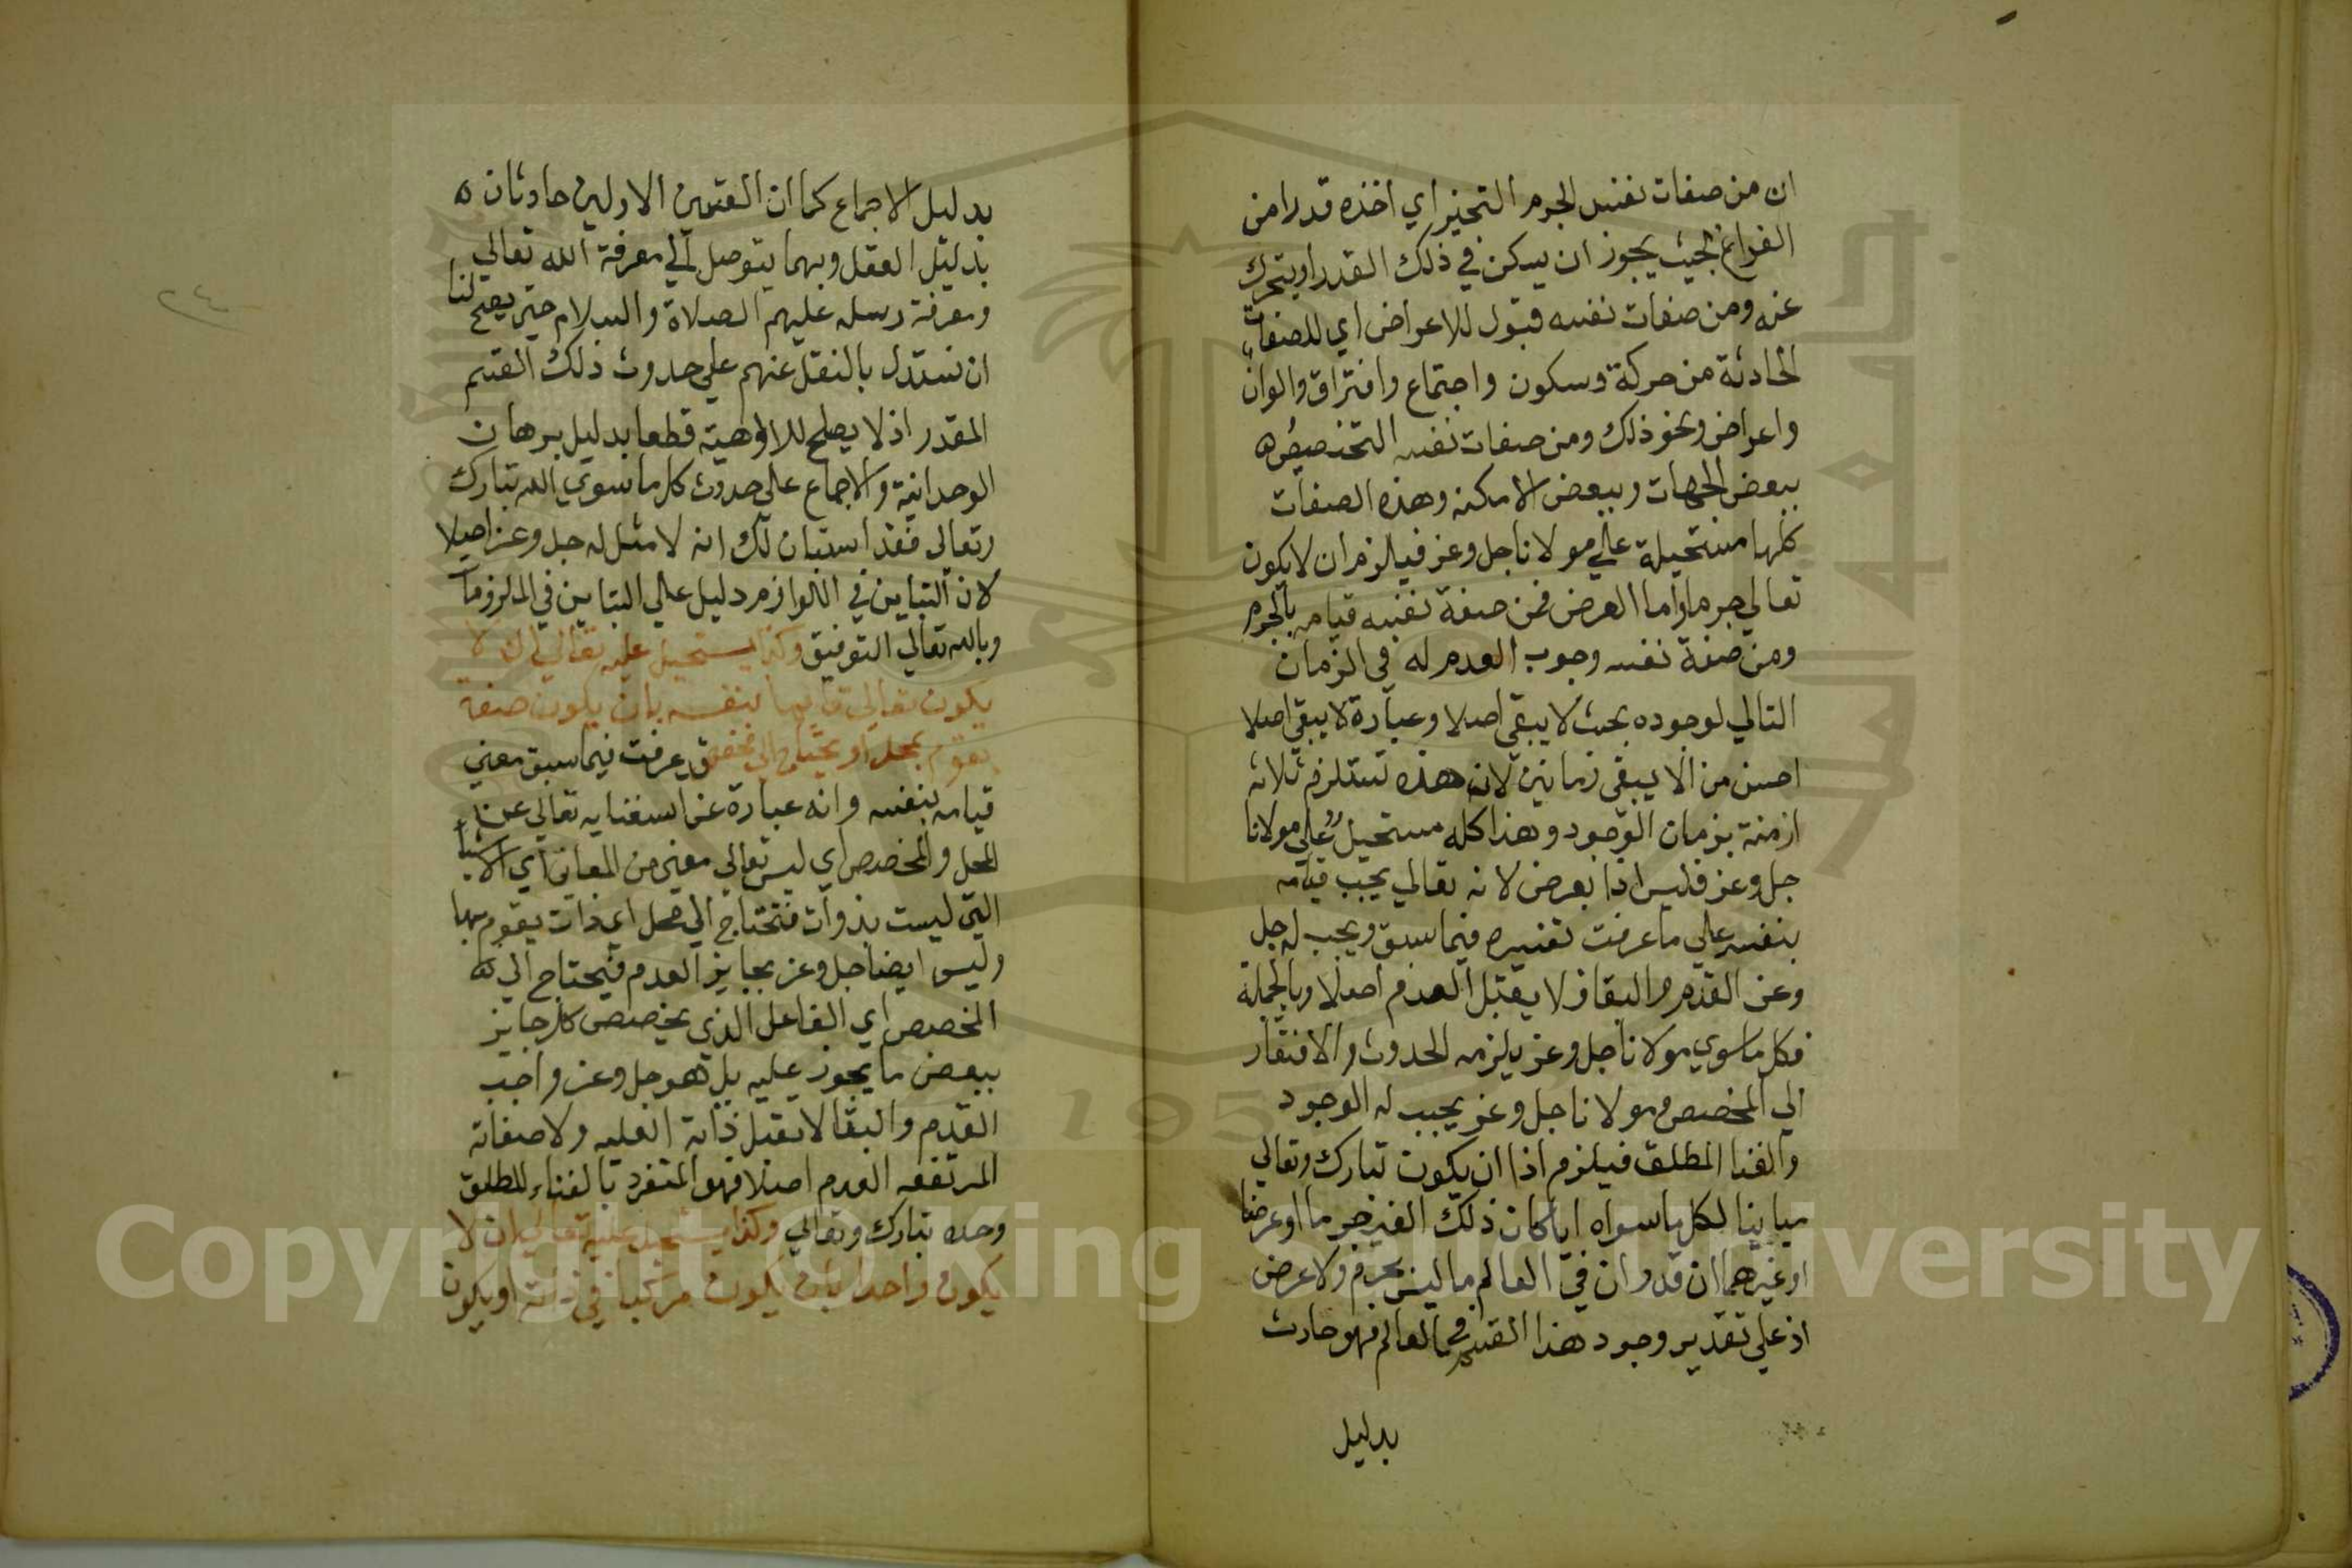 ان من صفات نفس الجرم التحيز اي اخذه قدرا من
الفراغ بحيث يجوز ان يسكن في ذلك القدر او يتحرك
عنه ومن صفات نفسه قبول للاعراض اي للصفات
الحادثة من حركة وسكون واجتماع وافتراق والوان
واعراض ونحو ذلك ومن صفات نفسه التخصيص ه
ببعض الجهات وببعض الامكنه وهذه الصفات
كلها مستحيلة علي مولانا جل وعز فيلزم ان لا يكون
تعالي جرما واما العرض فمن صفة نفسه قيامه بالجرم
ومن صفة نفسه وجوب العدم له في الزمان
التالي لوجوده بحيث لا يبقي اصلا وعبارة لا يبقي اصلا
احسن من لا يبقي زمانين لان هذه تستلزم ثلاثه
ازمنة بزمان الوجود وهذا كله مستحيل علي مولانا
جل وعز فليس اذا بعرض لانه تعالي يجب قيامه
بنفسه علي ما عرفت تفسيره فيما سبق ويجب له جل
وعز القدم والبقا فلا يقبل العدم اصلا وبالجملة
فكل ما سوي مولانا جل وعز يلزمه الحدوث والافتقار
الي المخصص ومولانا جل وعز يجب له الوجود
والغنا المطلق فيلزم اذا ان يكون تبارك وتعالي
مباينا لكل ما سواه ايا كان ذلك الغير جرما او عرضا
او غيرهما ان قدر ان في العالم ما ليس بجرم ولا عرض
اذ علي تقدير وجود هذا القسم في العالم فهو حادث
بدليل
بدليل الاجماع كما ان القسمين الاولين حادثان ه
بدليل العقل وبهما يتوصل الي معرفة الله تعالي
ومعرفة رسله عليهم الصلاة والسلام حتي يصح لنا
ان نستدل بالنقل عنهم علي حدوث ذلك القسم
المقدر اذ لا يصلح للالوهية قطعا بدليل برهان
الوحدانية والاجماع علي حدوث كل ما سوي الله تبارك
وتعالي فقد استبان لك انه لا مثل له جل وعز اصلا
لان التباين في اللوازم دليل علي التباين في الملزومات
وبالله تعالي التوفيق وكذا يستحيل عليه تعالي ان لا
يكون تعالي قايما بنفسه بان يكون صفة
تقوم بمحل او يحتاج الي مخصص قد عرفت فيما سبق معني
قيامه بنفسه وانه عبارة عن استغنايه تعالي عن
المحل والمخصص اي ليس تعالي معني من المعاني اي الاشيا
التي ليست بذوات فتحتاج الي محل اي ذات يقوم بها
وليس ايضا جل وعز بجايز العدم فيحتاج الي ه
المخصص اي الفاعل الذي يخصص كل جايز
ببعض ما يجوز عليه بل هو جل وعز واجب
القدم والبقا لا تقبل ذاته العليه ولا صفاته
المرتفعه العدم اصلا فهو المنفرد بالغناء المطلق
وحده تبارك وتعالي وكذا يستحيل عليه تعالي ان لا
يكون واحدا بان يكون مركبا في ذاته او يكون
٢٤
Copyright © King Saud University
1957